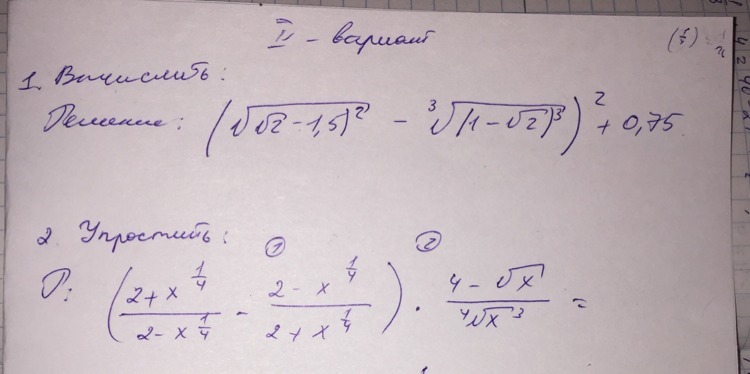 II - вариант
1. Вычислить:
Решение: (√(√2 - 1,5)² - ³√(1 - √2)³)² + 0,75
2. Упростить:
① ②
Р: ((2 + x^(1/4))/(2 - x^(1/4)) - (2 - x^(1/4))/(2 + x^(1/4))) · (4 - √x)/(⁴√x³) =